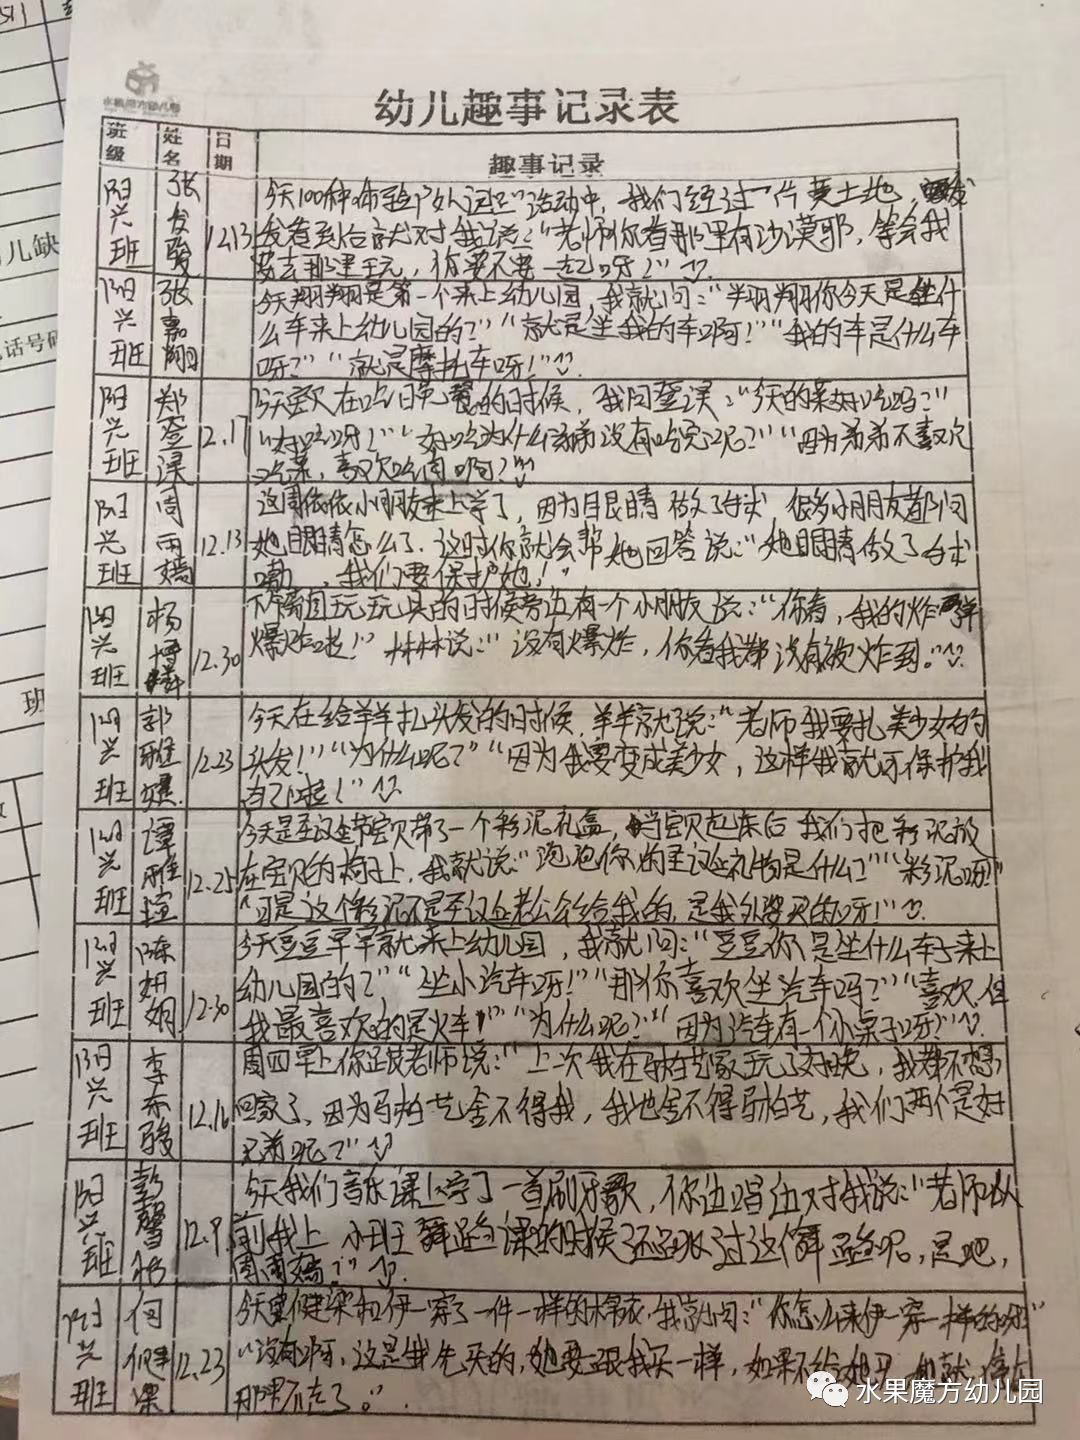 水果魔方幼儿园
幼儿趣事记录表
班级 姓名 日期 趣事记录
阳兴班 张 12.13
今天100种 活动中,我们经过一片黄土地,
发看到后就对我说:“老师你看那里有沙漠耶,等会我
要去那里玩,你要不要一起呀!”
阳兴班 张嘉翔
今天翔翔是第一个来上幼儿园,我就问:“翔翔你今天是坐什
么车来上幼儿园的?”“就是坐我的车啊!”“我的车是什么车
呀?”“就是摩托车呀!”
阳兴班 郑 12.17
今天宝贝在吃晚餐的时候,我问 :“今天的菜好吃吗?”
“好吃呀!”“好吃为什么 没有吃完呢?”“因为弟弟不喜欢
吃菜,喜欢吃肉啊!”
阳兴班 周雨嫣 12.13
这周依依小朋友来上学了,因为眼睛做了手术,很多小朋友都问
她眼睛怎么了,这时你就会帮她回答说:“她眼睛做了手术
嘞,我们要保护她!”
阳兴班 杨 12.30
下午离园玩玩具的时候旁边有一个小朋友说:“你看,我的炸弹
爆炸啦!”林林说:“没有爆炸,你看我都没有被炸到。”
阳兴班 郭 12.23
今天在给羊羊扎头发的时候,羊羊就说:“老师我要扎美少女的
头发!”“为什么呢?”“因为我要变成美少女,这样我就可保护我
自己啦!”
阳兴班 谭雅瑄 12.25
今天是圣诞节宝贝带了一个彩泥礼盒,当宝贝起床后我们把彩泥放
在宝贝的椅子上,我就说:“泡泡你的圣诞礼物是什么?”“彩泥呀”
“可是这个彩泥不是圣诞老公公给我的,是我外婆买的呀!”
阳兴班 陈妍 12.30
今天豆豆早早就来上幼儿园,我就问:“豆豆你是坐什么车子来上
幼儿园的?”“坐小汽车呀!”“那你喜欢坐汽车吗?”“喜欢,但
我最喜欢的是火车!”“为什么呢?”“因为汽车有一个小桌子呀?”
阳兴班 李东骏 12.16
周四早上你跟老师说:“上次我在 家玩了好晚,我都不想
回家了,因为 舍不得我,我也舍不得 ,我们两个是好
兄弟呢?”
阳兴班 彭馨 12.9
今天我们音乐课上学了一首刷牙歌,你边唱边对我说:“老师以
前我上小班舞蹈课的时候还跳过这个舞蹈呢,是吧,
周雨嫣?”
阳兴班 何健 12.23
今天 健 和伊一穿了一件一样的棉衣,我就问:“你怎么和伊一穿一样的呀”
“没有啊,这是我先买的,她要跟我买一样,如果不给她买 她就
那里不走了。”
水果魔方幼儿园